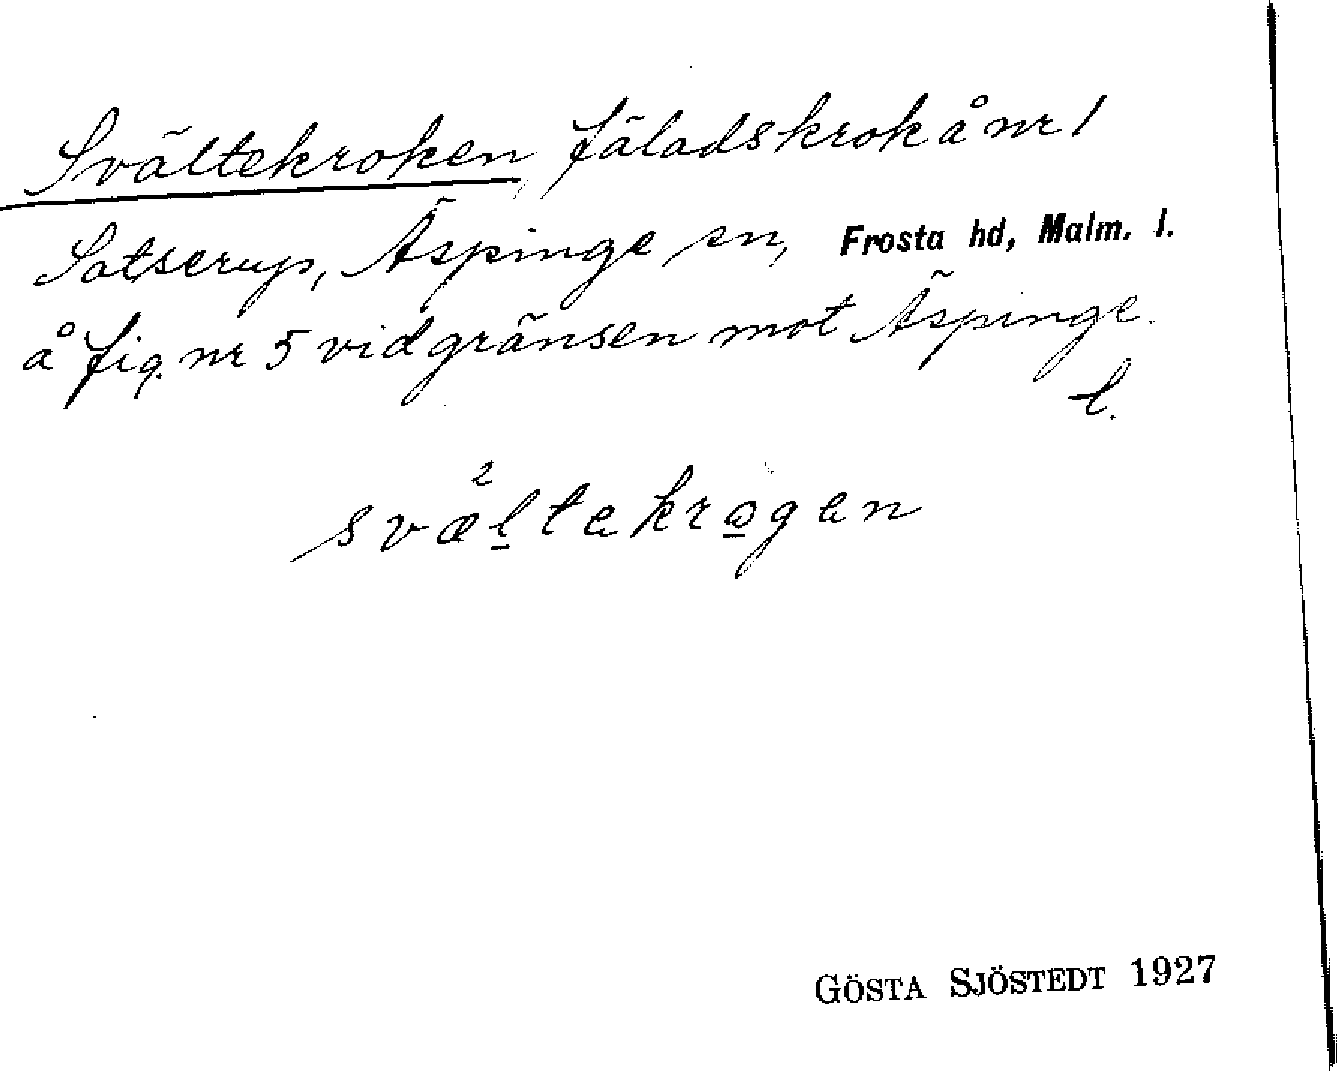 Svältekroken, fäladskrok å nr 1
Satserup, Äspinge sn, Frosta hd, Malm. l.
å fig. nr 5 vid gränsen mot Äspinge.
l.
svæ²ltekrogen
GÖSTA SJÖSTEDT 1927